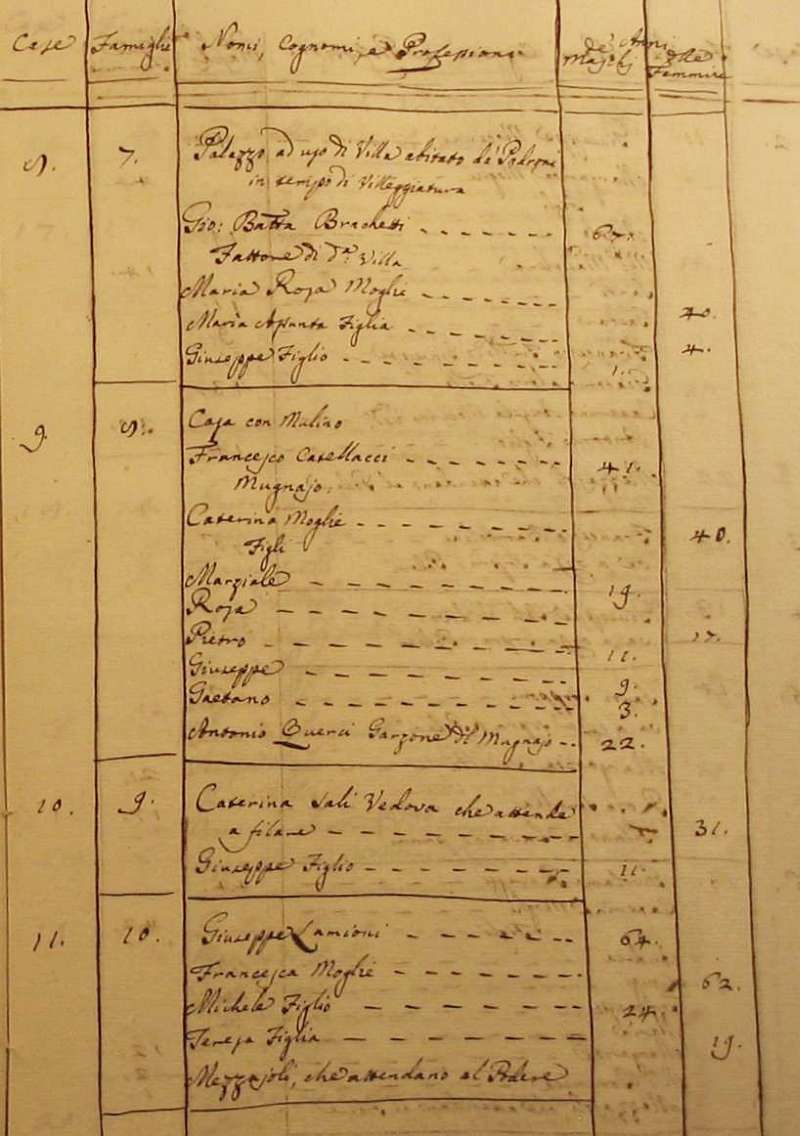 Case Famiglie Nomi, Cognomi, e Professioni de' Maschj Anni delle Femmine
8. 7. Palazzo ad uso di Villa abitato de' Padroni
in tempo di Villeggiatura
Gio: Batta Brachetti 67.
Fattore di d.ª Villa
Maria Rosa Moglie 40.
Maria Assunta Figlia 4.
Giuseppe Figlio 1.
9. 8. Casa con Mulino
Francesco Catellacci 41.
Mugnajo.
Caterina Moglie 40.
Figli
Marziale 19.
Rosa 17.
Pietro 11.
Giuseppe 9.
Gaetano 3.
Antonio Querci Garzone del Mugnajo 22.
10. 9. Caterina Sali Vedova che attende
a filare 31.
Giuseppe Figlio 11.
11. 10. Giuseppe Lamioni 64.
Francesca Moglie 62.
Michele Figlio 24.
Teresa Figlia 19.
Mezzajoli, che attendano al Podere